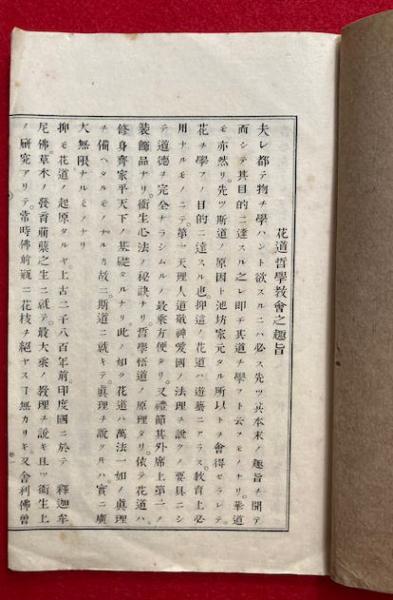 花道哲學敎會之趣旨
夫レ都テ物ヲ學ハント欲スルニハ必ス先ツ其本末ノ趣旨ヲ聞テ
而シテ其目的ニ達スル之レ卽チ其道ヲ學フト云フモノナリ。華道
モ亦然リ。先ツ斯道ノ原因ト池坊家元タル所以トヲ會得セラレテ。
花ヲ學フノ目的ニ達スル也抑這ノ花道ハ遊藝ニアラス敎育上必
用ナルモノニテ。第一天理人道敬神愛國ノ法理ヲ說クノ要具ニシ
テ道德ヲ完全ナラシムルノ最乘方便ナリ。又禮節其外席上第一ノ
裝飾品ナリ。衞生心法ノ秘訣ナリ。哲學悟道ノ原理タリ。依テ花道ハ
修身齊家平天下ノ基礎タルナリ。此ノ如ク花道ハ萬法一如ノ眞理
ヲ備ヘタルモノナルカ故ニ斯道ニ就キテ。眞理ヲ說クルハ實ニ廣
大無限ナルモノナリ
抑モ花道ノ起原タルヤ上古二千八百年前。印度國ニ於テ 釋迦牟
尼佛草木ノ發育萠蘗之生ニ就テ。最大乘ノ敎理ヲ說キ且ツ衞生上
ノ研究アリテ。常時佛前瓶ニ花枝ヲ絕ヤスヿ無カリキ。又舍利佛曾